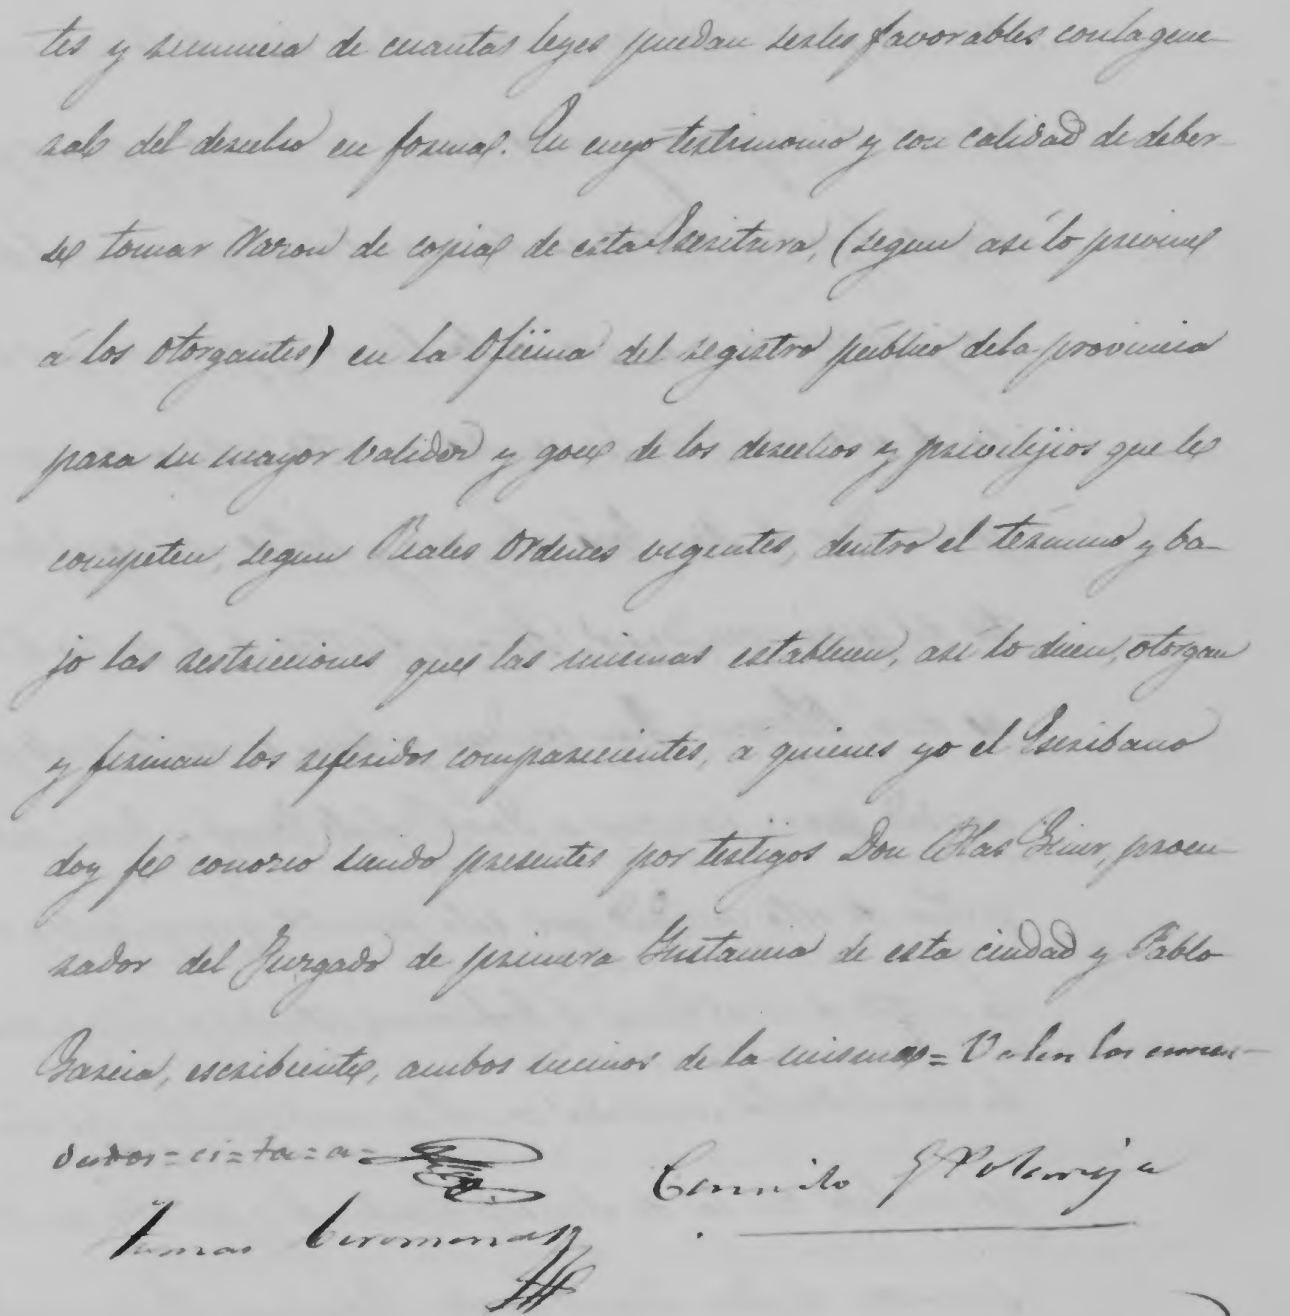 tes y renuncia de cuantas leyes puedan serles favorables con la gene-
ral del derecho en forma. En cuyo testimonio y con calidad de deber-
se tomar razon de copia de esta Escritura, (segun asi lo previne
á los otorgantes) en la Oficina del registro público de la provincia
para su mayor validez y goce de los derechos y privilejios que le
competen, segun Reales Ordenes vigentes, dentro el término y ba-
jo las restricciones que las mismas establecen, asi lo dicen, otorgan
y firman los referidos comparecientes, á quienes yo el Escribano
doy fé conozco siendo presentes por testigos Don Blas Giner, procu-
rador del Juzgado de primera Instancia de esta ciudad y Pablo
Garcia, escribiente, ambos vecinos de la misma = Valen los enmen-
dados = ci = ta = a =
Camilo
Tomas